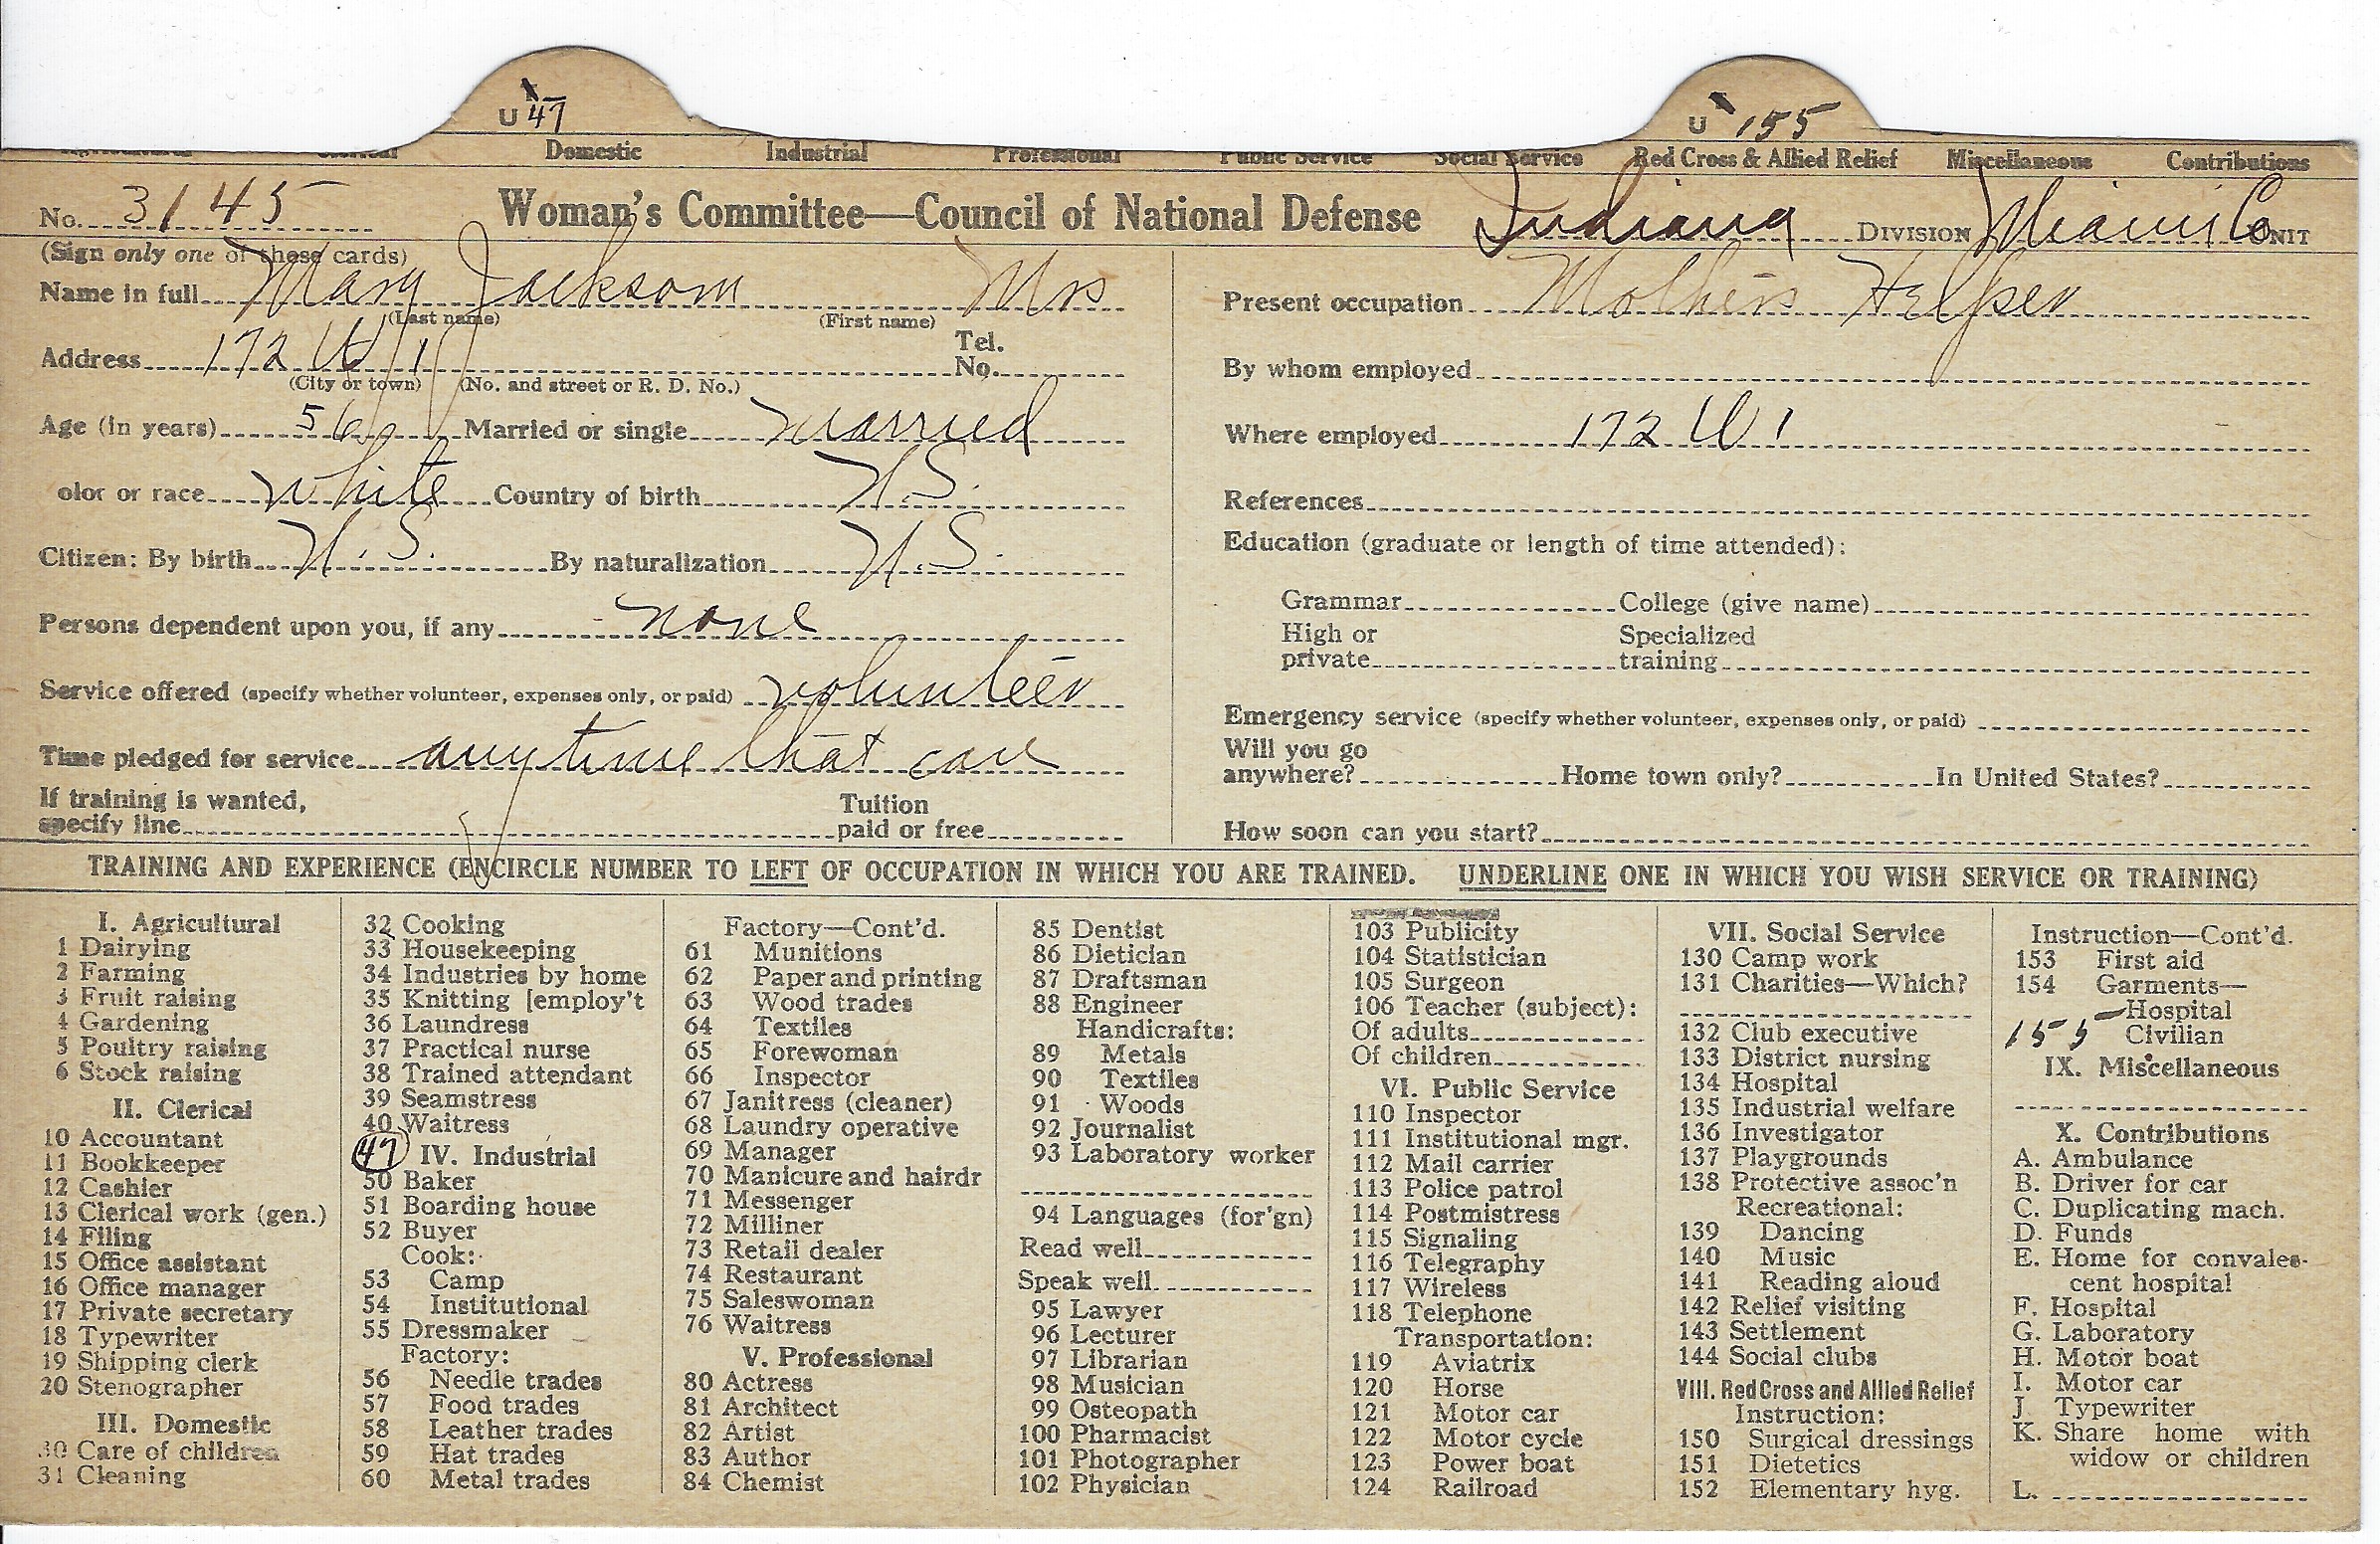 U 47
U 155
Domestic Industrial Professional Public Service Social Service Red Cross & Allied Relief Miscellaneous Contributions
No. 3145 Woman's Committee—Council of National Defense Indiana DIVISION Miami Co UNIT
(Sign only one of these cards)
Name in full Mary Jackson Mrs
(Last name) (First name)
Address 172 W 1 Tel. No.
(City or town) (No. and street or R. D. No.)
Age (in years) 56 Married or single married
olor or race white Country of birth U.S.
Citizen: By birth U.S. By naturalization U.S.
Persons dependent upon you, if any none
Service offered (specify whether volunteer, expenses only, or paid) volunteer
Time pledged for service any time that can
If training is wanted, specify line Tuition paid or free
Present occupation Mothers Helper
By whom employed
Where employed 172 W 1
References
Education (graduate or length of time attended):
Grammar College (give name)
High or private Specialized training
Emergency service (specify whether volunteer, expenses only, or paid)
Will you go anywhere? Home town only? In United States?
How soon can you start?
TRAINING AND EXPERIENCE (ENCIRCLE NUMBER TO LEFT OF OCCUPATION IN WHICH YOU ARE TRAINED. UNDERLINE ONE IN WHICH YOU WISH SERVICE OR TRAINING)
I. Agricultural
1 Dairying
2 Farming
3 Fruit raising
4 Gardening
5 Poultry raising
6 Stock raising
II. Clerical
10 Accountant
11 Bookkeeper
12 Cashier
13 Clerical work (gen.)
14 Filing
15 Office assistant
16 Office manager
17 Private secretary
18 Typewriter
19 Shipping clerk
20 Stenographer
III. Domestic
30 Care of children
31 Cleaning
32 Cooking
33 Housekeeping
34 Industries by home
35 Knitting [employ't
36 Laundress
37 Practical nurse
38 Trained attendant
39 Seamstress
40 Waitress
47 IV. Industrial
50 Baker
51 Boarding house
52 Buyer
Cook:
53 Camp
54 Institutional
55 Dressmaker
Factory:
56 Needle trades
57 Food trades
58 Leather trades
59 Hat trades
60 Metal trades
Factory—Cont'd.
61 Munitions
62 Paper and printing
63 Wood trades
64 Textiles
65 Forewoman
66 Inspector
67 Janitress (cleaner)
68 Laundry operative
69 Manager
70 Manicure and hairdr
71 Messenger
72 Milliner
73 Retail dealer
74 Restaurant
75 Saleswoman
76 Waitress
V. Professional
80 Actress
81 Architect
82 Artist
83 Author
84 Chemist
85 Dentist
86 Dietician
87 Draftsman
88 Engineer
Handicrafts:
89 Metals
90 Textiles
91 Woods
92 Journalist
93 Laboratory worker
94 Languages (for'gn)
Read well
Speak well
95 Lawyer
96 Lecturer
97 Librarian
98 Musician
99 Osteopath
100 Pharmacist
101 Photographer
102 Physician
103 Publicity
104 Statistician
105 Surgeon
106 Teacher (subject):
Of adults
Of children
VI. Public Service
110 Inspector
111 Institutional mgr.
112 Mail carrier
113 Police patrol
114 Postmistress
115 Signaling
116 Telegraphy
117 Wireless
118 Telephone
Transportation:
119 Aviatrix
120 Horse
121 Motor car
122 Motor cycle
123 Power boat
124 Railroad
VII. Social Service
130 Camp work
131 Charities—Which?
132 Club executive
133 District nursing
134 Hospital
135 Industrial welfare
136 Investigator
137 Playgrounds
138 Protective assoc'n
Recreational:
139 Dancing
140 Music
141 Reading aloud
142 Relief visiting
143 Settlement
144 Social clubs
VIII. Red Cross and Allied Relief
Instruction:
150 Surgical dressings
151 Dietetics
152 Elementary hyg.
Instruction—Cont'd.
153 First aid
154 Garments—
Hospital
155 Civilian
IX. Miscellaneous
X. Contributions
A. Ambulance
B. Driver for car
C. Duplicating mach.
D. Funds
E. Home for convales-
cent hospital
F. Hospital
G. Laboratory
H. Motor boat
I. Motor car
J. Typewriter
K. Share home with
widow or children
L.